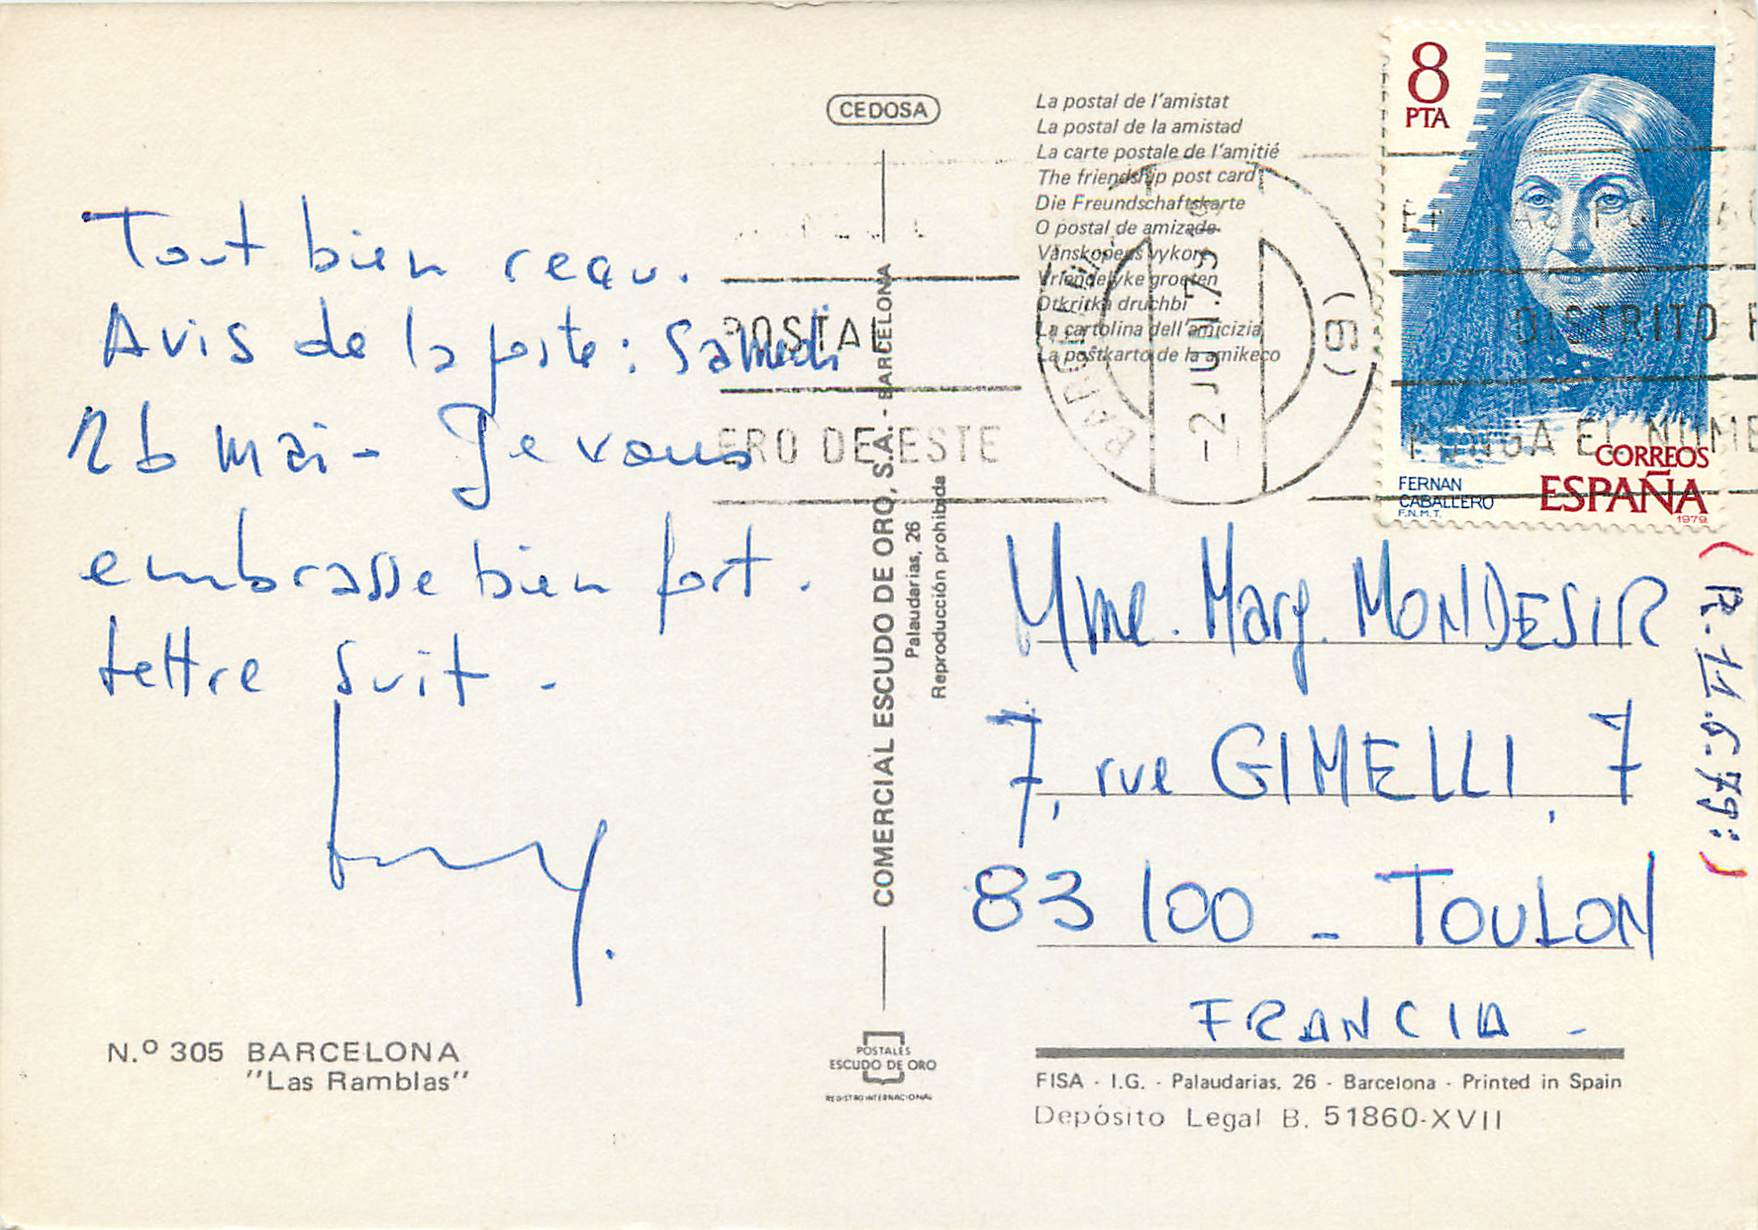 CEDOSA
Tout bien reçu.
Avis de la poste : Samedi
26 mai - Je vous
embrasse bien fort.
Lettre suit -
N.º 305 BARCELONA
"Las Ramblas"
COMERCIAL ESCUDO DE ORO, S.A. - BARCELONA
Palaudarias, 26
Reproducción prohibida
POSTALES
ESCUDO DE ORO
REGISTRO INTERNACIONAL
La postal de l'amistat
La postal de la amistad
La carte postale de l'amitié
The friendship post card
Die Freundschaftskarte
O postal de amizade
Vänskopens vykort
Vriendelyke groeten
Otkritka druchbi
La cartolina dell'amicizia
La postkarto de la amikeco
POSTAL
ERO DE ESTE
-2 JUN.79
(19)
DISTRITO P
PONGA EL NUME
8
PTA
CORREOS
ESPAÑA
1979
FERNAN
CABALLERO
F.N.M.T.
Mme. Marg. MONDESIR
7, rue GIMELLI, 7
83100 - TOULON
FRANCIA -
(R. 11.6.79:)
FISA - I.G. - Palaudarias, 26 - Barcelona - Printed in Spain
Depósito Legal B. 51860-XVII